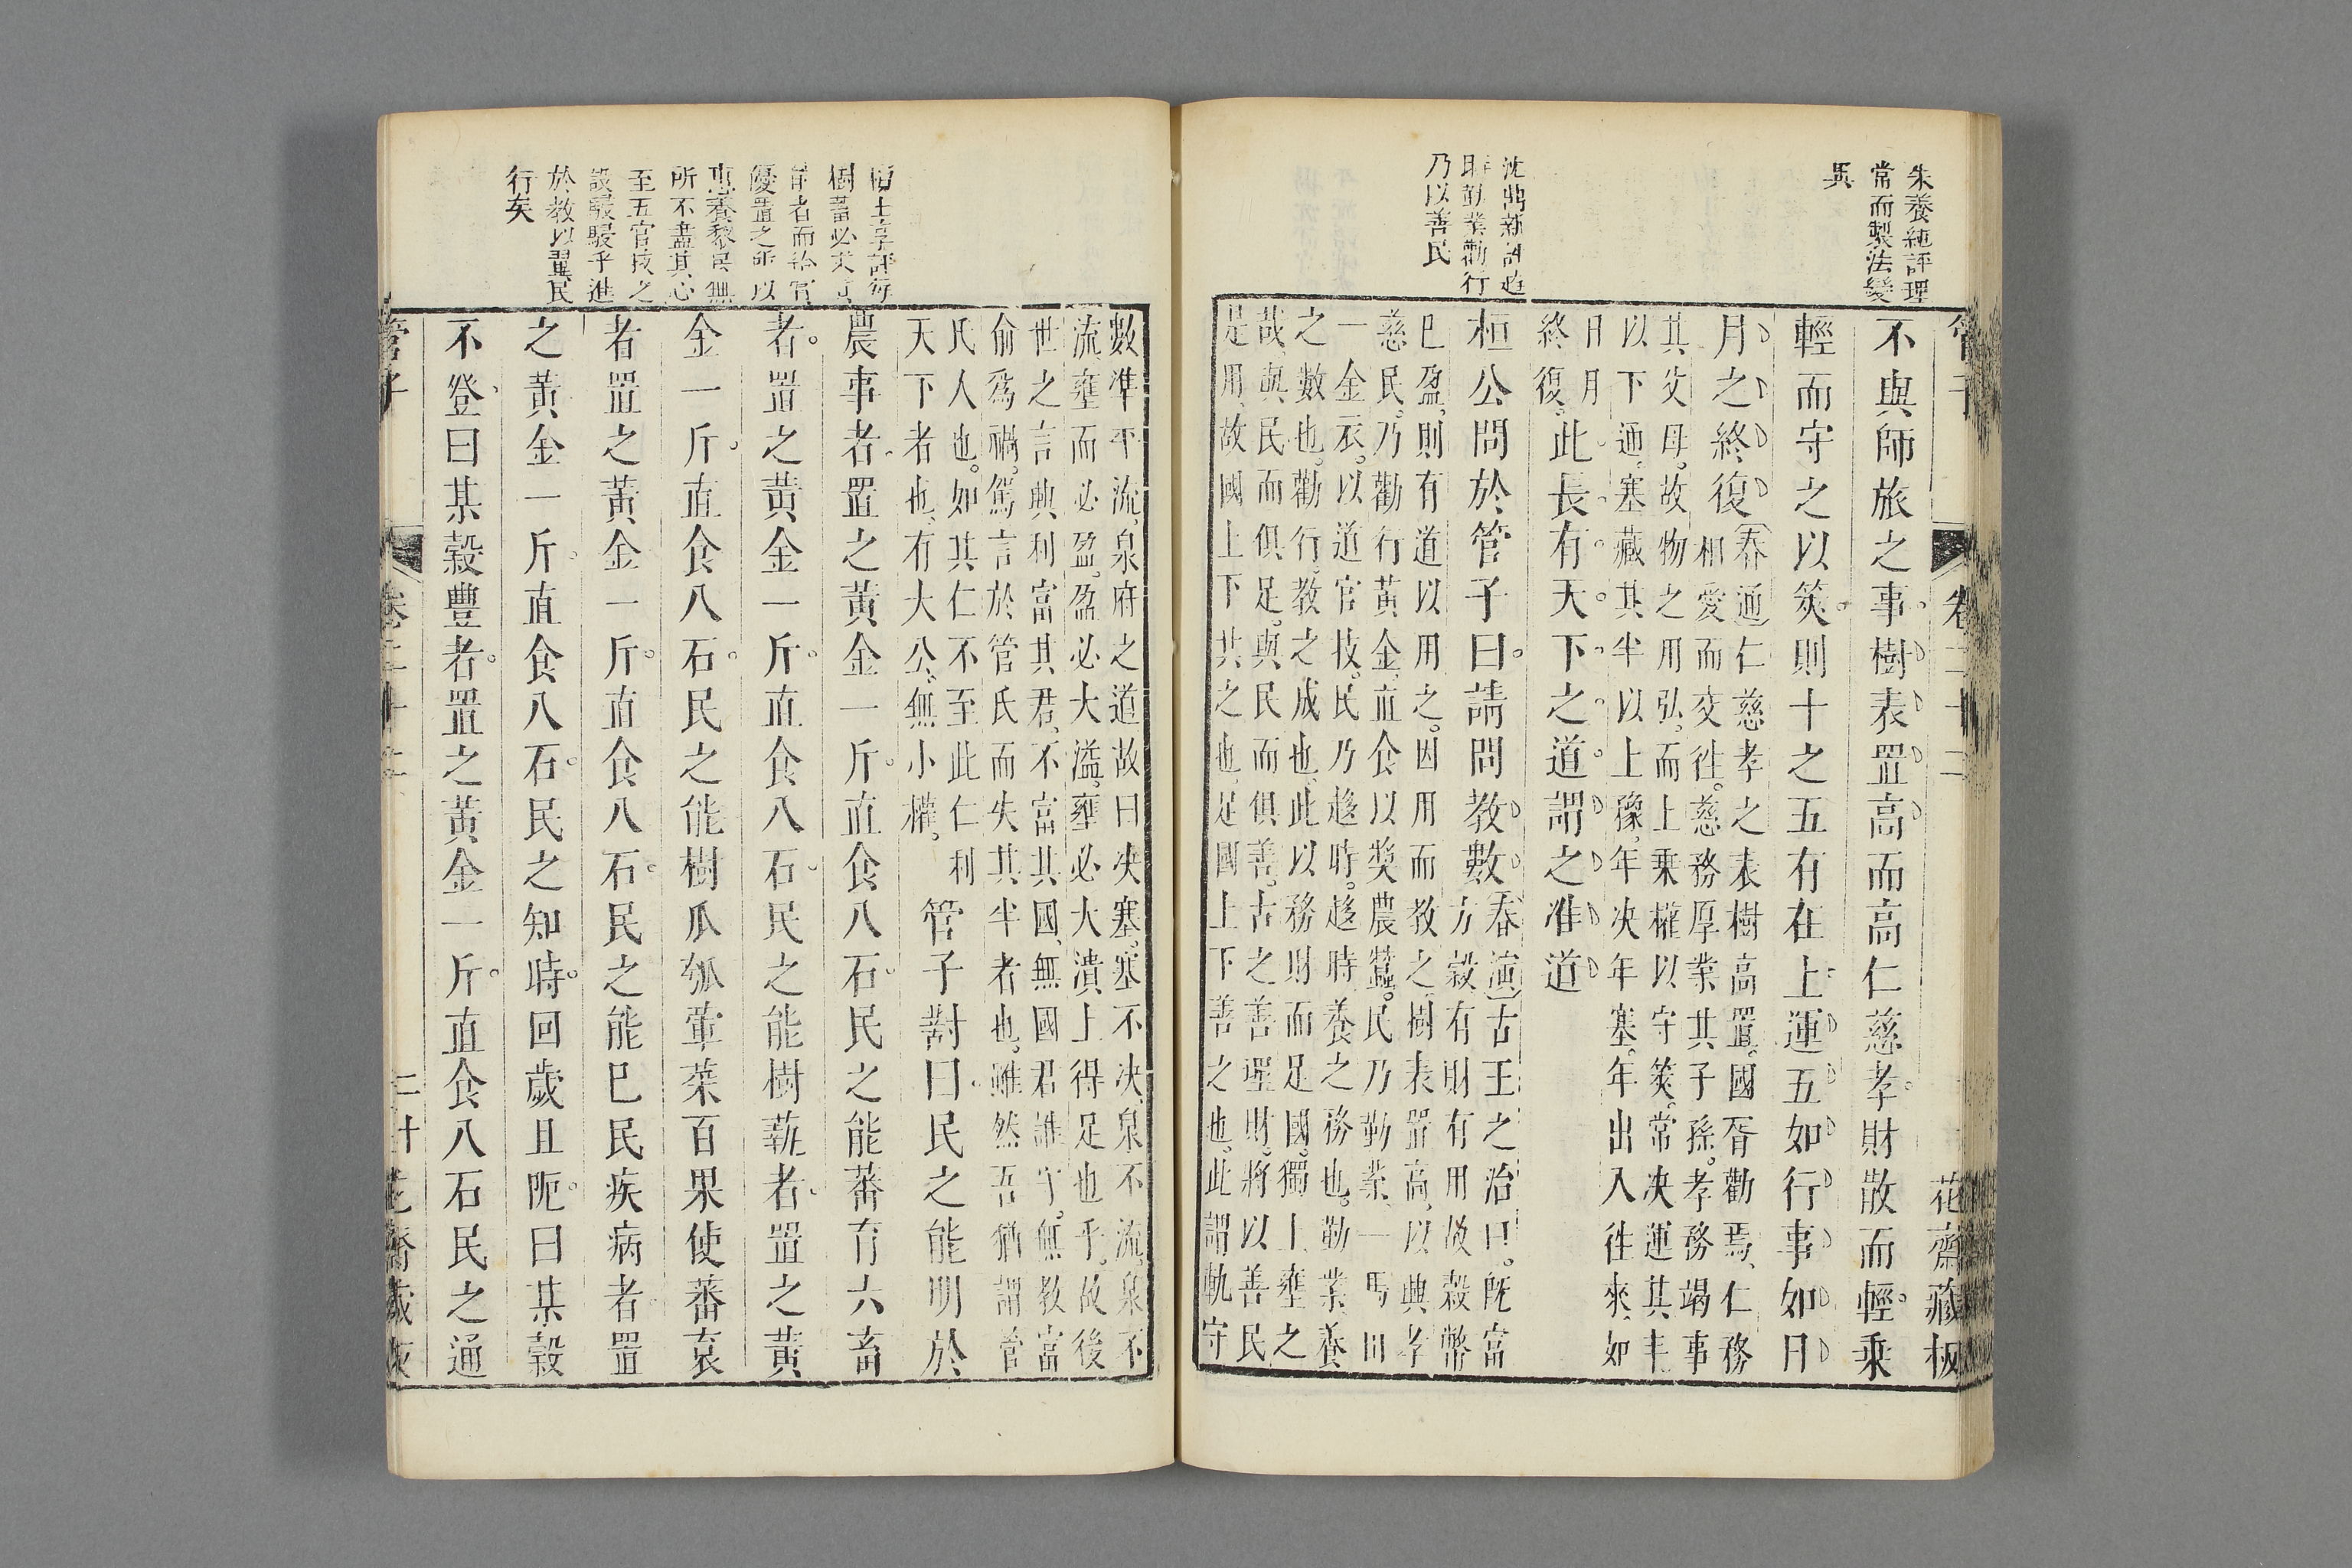 朱養純評理
常而製法變
馬
管子
卷二十二
花齋藏板
不與師旅之事樹表置高而高仁慈孝財散而輕乘
輕而守之以筴則十之五有在上運五如行事如日
月之終復
春通
仁慈孝之表樹高置國胥勸焉仁務
相愛而交徃慈務厚業其子孫孝務竭事
其父母故物之用弘而上乘權以守筴常决運其
以下通塞藏其半以上豫年决年塞年出入徃來如
日月
終復
此長有天下之道謂之准道
沈鼎新評
勤業勸行
乃以善民
桓公問於管子曰請問教數
春演
古王之治曰既富
方穀有財有用故穀幣
已盈則有道以用之因用而教之樹表置高以典孝
慈民乃勸行黃金直食以奬農蠶民乃勤業一馬田
一金衣以道官技民乃趍時趍時養之務也勤業養
之數也勸行教之成也此以務財而足國獨上壅之
哉與民而俱足與民而俱善古之善理財將以善民
是用故國上下共之也足國上下善之也此謂軌守
數準平流泉府之道故曰决塞塞不决泉不流泉不
流壅而必盈盈必大溢壅必大潰上得足也乎故後
世之言典利富其君不富其國無國君誰守無教富
偷爲禍篤言於管氏而失其半者也雖然吾猶謂管
氏人也如其仁不至此仁利
天下者也有大公無小權
管子對曰民之能明於
樹蓄必
能者而
優置之所以
惠養黎民無
所不盡其心
至五官技之
設駸駸乎進
於教以翼民
行矣
農事者置之黃金一斤直食八石民之能蕃育六畜
者置之黃金一斤直食八石民之能樹蓺者置之黃
金一斤直食八石民之能樹瓜瓠葷菜百果使蕃袬
者置之黃金一斤直食八石民之能已民疾病者置
之黃金一斤直食八石民之知時曰歲且阨曰某穀
不登曰某穀豐者置之黃金一斤直食八石民之通
管子
卷二十二
二十
花齋藏板